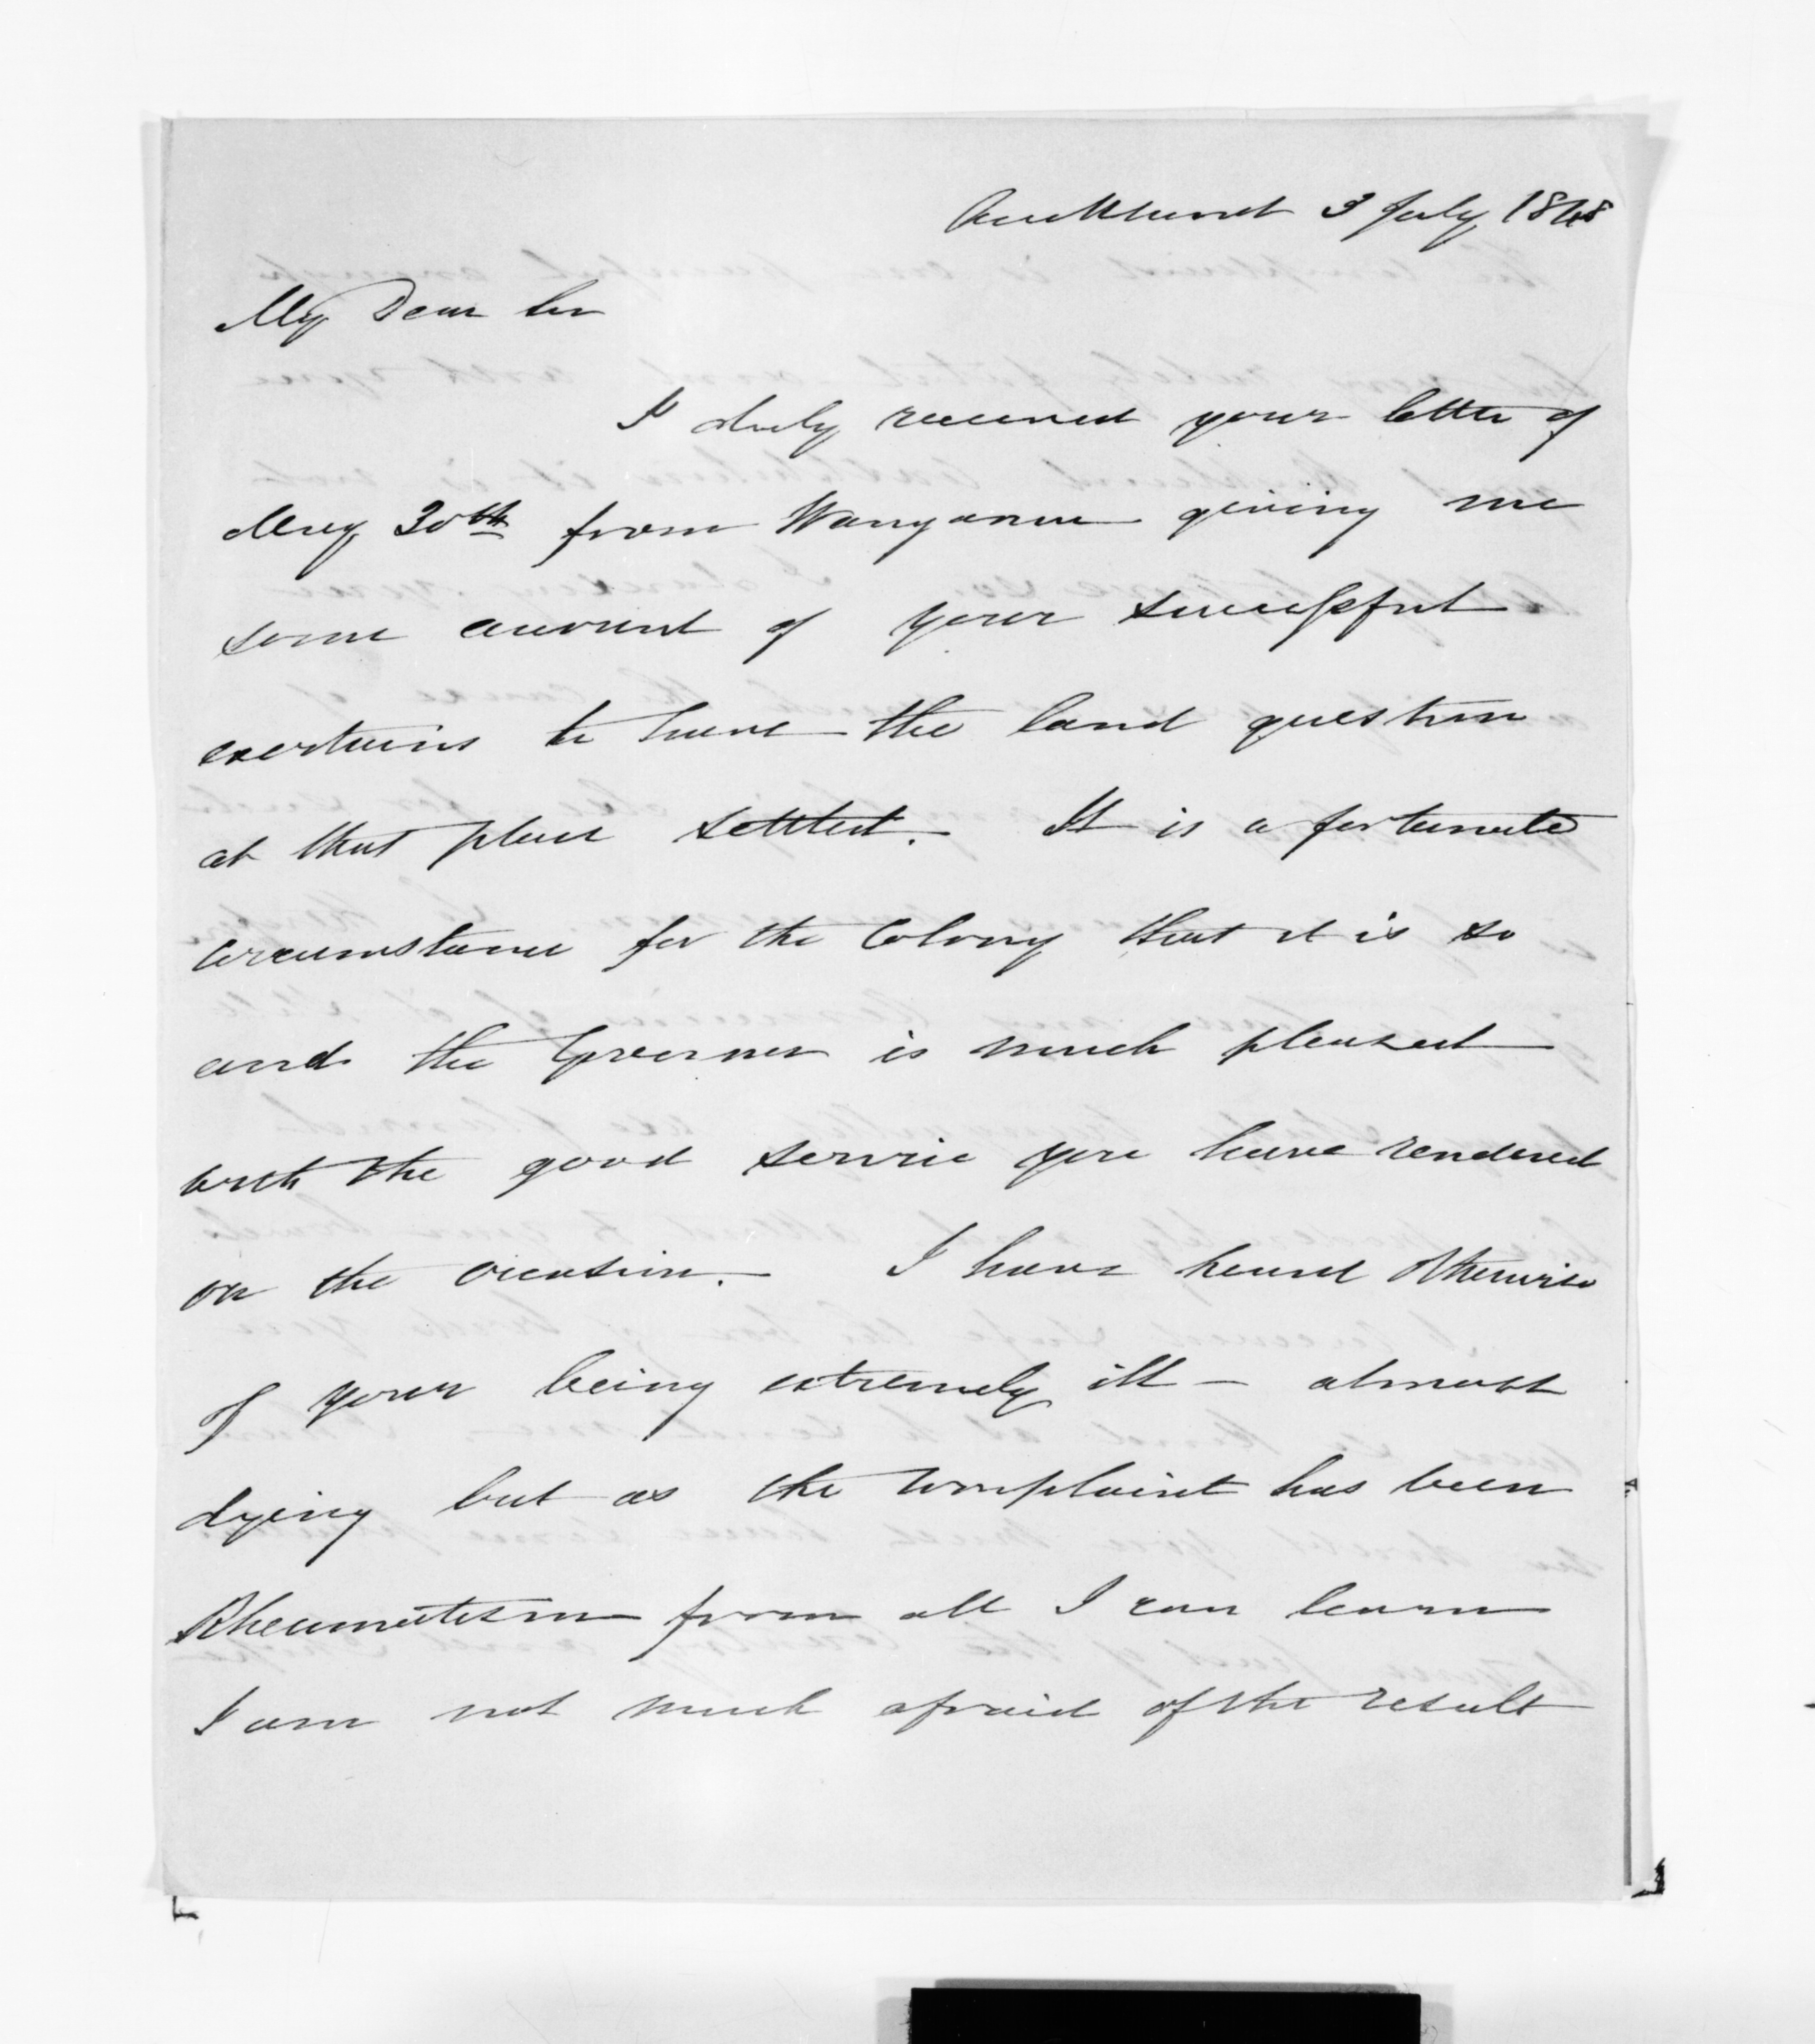 Auckland 3 July 1848
My Dear Sir
I duly received your letter of
May 30th from Wanganui giving me
some account of your successful
exertions to have the land question
at that place settled. It is a fortunate
circumstance for the Colony that it is so
and the Governor is much pleased
with the good service you have rendered
on the occasion. I have heard otherwise
of your being extremely ill - almost
dying but as the complaint has been
Rheumatism from all I can learn
I am not much afraid of the result